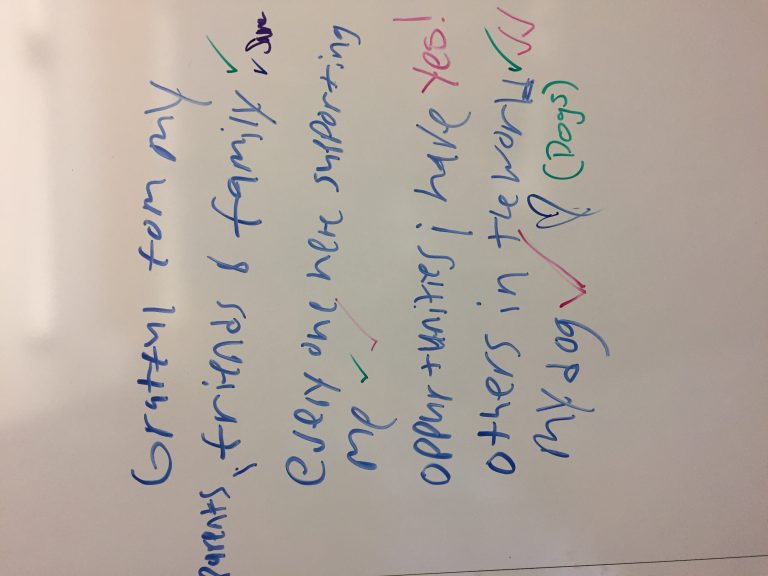 Gratful from my
parents, friends & family
Every one here supporting
me
opportunities! help Yes!
others in
my dog (Dogs)